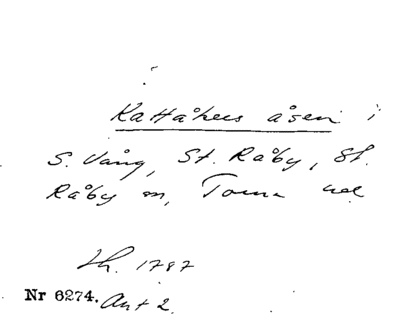 Kattåkers åsen i
S. Vång, St. Råby, St.
Råby sn, Torna hd
Lh. 1787
Nr 6274. Ant 2.